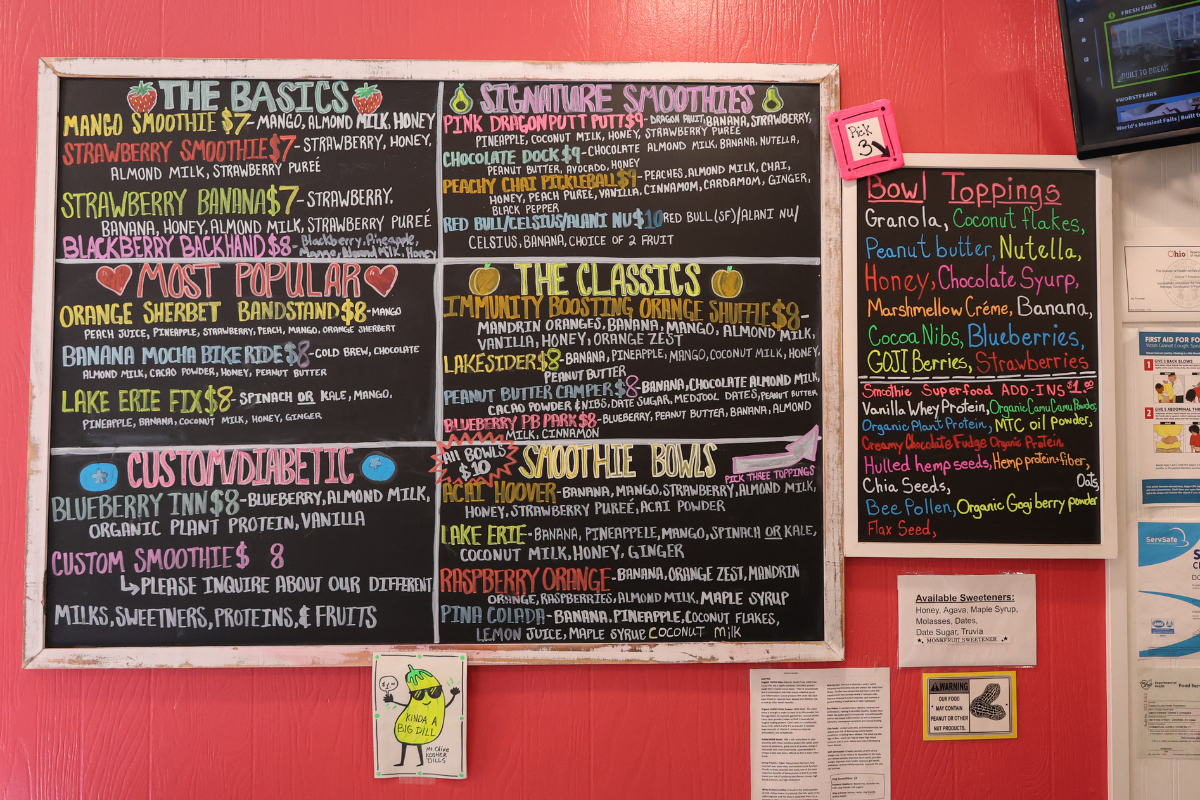 THE BASICS
MANGO SMOOTHIE $7-MANGO, ALMOND MILK, HONEY
STRAWBERRY SMOOTHIE $7-STRAWBERRY, HONEY,
ALMOND MILK, STRAWBERRY PUREÉ
STRAWBERRY BANANA $7-STRAWBERRY,
BANANA, HONEY, ALMOND MILK, STRAWBERRY PUREÉ
BLACKBERRY BACKHAND $8-Blackberry, Pineapple,
Mango, Almond Milk, Honey
SIGNATURE SMOOTHIES
PINK DRAGON PUTT PUTT $9-DRAGON FRUIT, BANANA, STRAWBERRY,
PINEAPPLE, COCONUT MILK, HONEY, STRAWBERRY PUREE
CHOCOLATE DOCK $9-CHOCOLATE ALMOND MILK, BANANA, NUTELLA,
PEANUT BUTTER, AVOCADO, HONEY
PEACHY CHAI PICKLEBALL $9-PEACHES, ALMOND MILK, CHAI,
HONEY, PEACH PUREE, VANILLA, CINNAMOM, CARDAMOM, GINGER,
BLACK PEPPER
RED BULL/CELSIUS/ALANI NU $10 RED BULL (SF)/ALANI NU/
CELSIUS, BANANA, CHOICE OF 2 FRUIT
MOST POPULAR
ORANGE SHERBET BANDSTAND $8-MANGO
PEACH JUICE, PINEAPPLE, STRAWBERRY, PEACH, MANGO, ORANGE SHERBERT
BANANA MOCHA BIKE RIDE $8-COLD BREW, CHOCOLATE
ALMOND MILK, CACAO POWDER, HONEY, PEANUT BUTTER
LAKE ERIE FIX $8-SPINACH OR KALE, MANGO,
PINEAPPLE, BANANA, COCONUT MILK, HONEY, GINGER
THE CLASSICS
IMMUNITY BOOSTING ORANGE SHUFFLE $8-
MANDRIN ORANGES, BANANA, MANGO, ALMOND MILK,
VANILLA, HONEY, ORANGE ZEST
LAKESIDER $8-BANANA, PINEAPPLE, MANGO, COCONUT MILK, HONEY,
PEANUT BUTTER
PEANUT BUTTER CAMPER $8-BANANA, CHOCOLATE ALMOND MILK,
CACAO POWDER & NIBS, DATE SUGAR, MEDJOOL DATES, PEANUT BUTTER
BLUEBERRY PB PARK $8-BLUEBERRY, PEANUT BUTTER, BANANA, ALMOND
MILK, CINNAMON
CUSTOM/DIABETIC
BLUEBERRY INN $8-BLUEBERRY, ALMOND MILK,
ORGANIC PLANT PROTEIN, VANILLA
CUSTOM SMOOTHIE $ 8
PLEASE INQUIRE ABOUT OUR DIFFERENT
MILKS, SWEETNERS, PROTEINS, & FRUITS
All BOWLS
$10
SMOOTHIE BOWLS
PICK THREE TOPPINGS
ACAI HOOVER-BANANA, MANGO, STRAWBERRY, ALMOND MILK,
HONEY, STRAWBERRY PUREÉ, ACAI POWDER
LAKE ERIE-BANANA, PINEAPPPLE, MANGO, SPINACH OR KALE,
COCONUT MILK, HONEY, GINGER
RASPBERRY ORANGE-BANANA, ORANGE ZEST, MANDRIN
ORANGE, RASPBERRIES, ALMOND MILK, MAPLE SYRUP
PINA COLADA-BANANA, PINEAPPLE, COCONUT FLAKES,
LEMON JUICE, MAPLE SYRUP COCONUT MILK
Pick
3
Bowl Toppings
Granola, Coconut flakes,
Peanut butter, Nutella,
Honey, Chocolate Syurp,
Marshmellow Créme, Banana,
Cocoa Nibs, Blueberries,
GOJI Berries, Strawberries
Smoothie Superfood ADD-INS $1.00
Vanilla Whey Protein, Organic Camu Camu Powder,
Organic Plant Protein, MTC oil powder,
Creamy Chocolate Fudge Organic Protein
Hulled hemp seeds, Hemp protein+fiber,
Chia Seeds, Oats,
Bee Pollen, Organic Gogi berry powder
Flax Seed,
Available Sweeteners:
Honey, Agava, Maple Syrup,
Molasses, Dates,
Date Sugar, Truvia
MONKFRUIT SWEETENER
WARNING
OUR FOOD
MAY CONTAIN
PEANUT OR OTHER
NUT PRODUCTS.
KINDA A
BIG DILL
Mt Olive
KOSHER
DILLS
FRESH FAILS
BUILT TO BREAK
#WORSTFEARS
World's Messiest Fails | Built to
Ohio
FIRST AID FOR FO
1
GIVE 5 BACK BLOWS
2
GIVE 5 ABDOMINAL TH
ServSafe
Food Serv